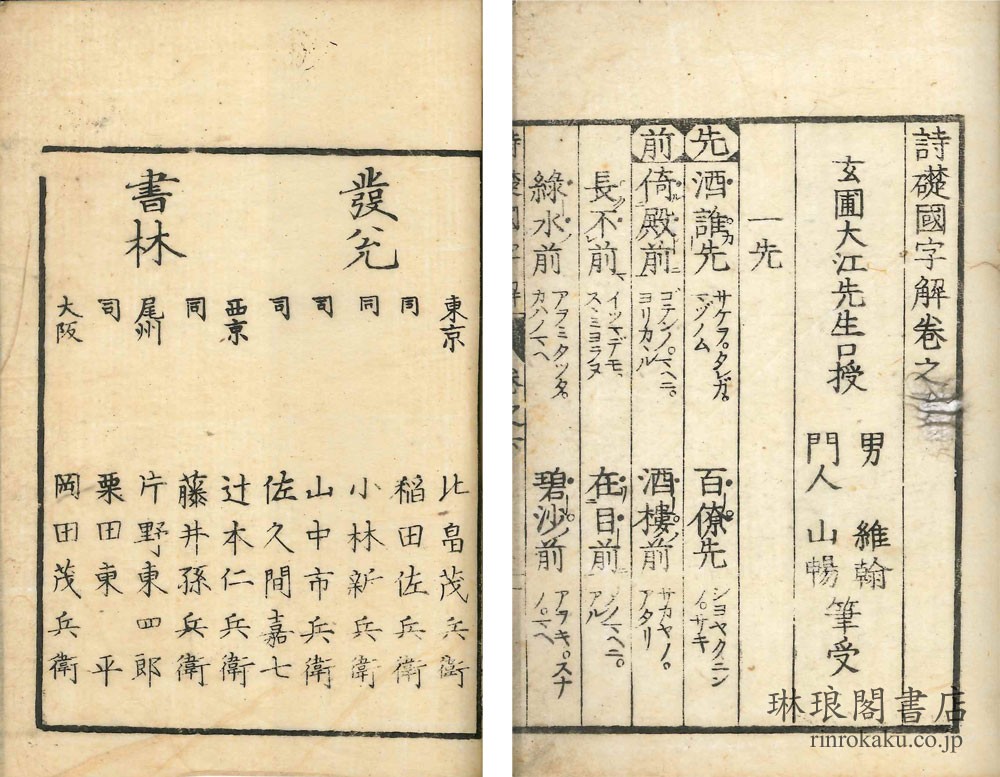 詩礎國字解卷之
玄圃大江先生口授
男 維翰
門人 山暢
筆受
一先
先 酒誰先 サケヲ。タレガ。マヅノム 百僚先 シヨヤクニンノ。サキ
前 倚殿前 ゴテンノ。マヘニ。ヨリカヽル 酒樓前 サカヤノ。アタリ
長不前 イツマデモ、スヽミヨラヌ 在目前 ノマヘニ。アル
綠水前 アヲミタツタ。カハノマヘ 碧沙前 アヲキ。スナノ。マヘ
發兌
書林
東京 北畠茂兵衛
同 稲田佐兵衛
同 小林新兵衛
司 山中市兵衛
司 佐久間嘉七
西京 辻本仁兵衛
同 藤井孫兵衛
尾州 片野東四郎
司 栗田東平
大阪 岡田茂兵衛
琳琅閣書店
rinrokaku.co.jp